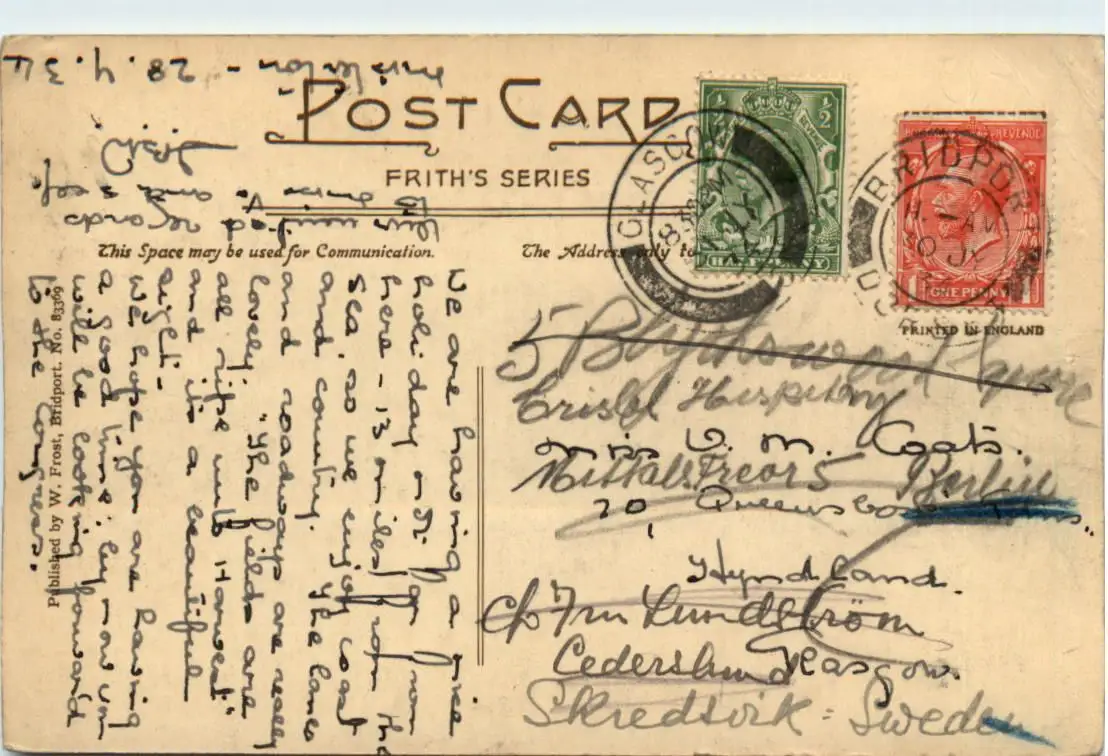 POST CARD
FRITH'S SERIES
This Space may be used for Communication.
The Address only to
PRINTED IN ENGLAND
Published by W. Frost, Bridport. No. 83369
We are having a nice
holiday not far from
here - 13 miles from the
sea, so we enjoy coast
and country. The lanes
and roadways are really
lovely. "The fields are
all ripe unto Harvest"
and it's a beautiful
sight.
We hope you are having
a good time: by now you
will be looking forward
to the congress.
regards
and
- 28.7.34
GLASGOW
BRIDPORT
HALFPENNY
REVENUE
ONE PENNY
5 Blythswood Square
Hospiz
Miss V. M. Coats.
Mittelstreet 5 Berlin
20, Queensboro
Hyndland.
c/o Fru Lundström
Glasgow.
Cederslund
Skredsvik: Sweden